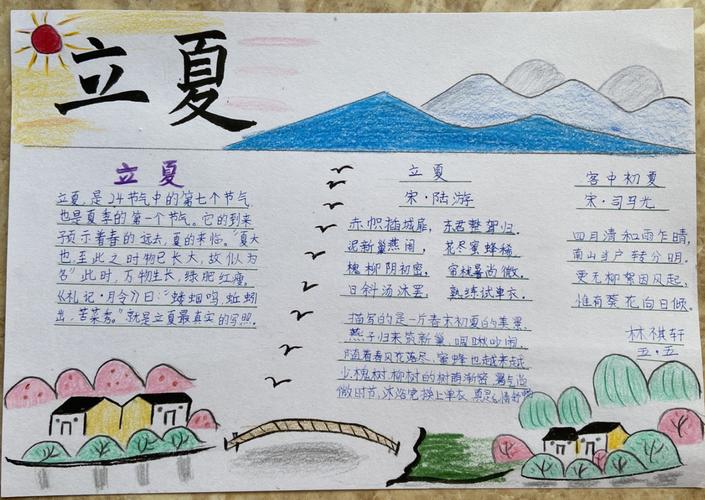 立夏
立夏
立夏,是24节气中的第七个节气,
也是夏季的第一个节气。它的到来
预示着春的远去,夏的来临。"夏大
也,至此之时物已长大,故以为
名"此时,万物生长,绿肥红瘦。
《礼记·月令》曰:"蝼蝈鸣,蚯蚓
出,苦菜秀。"就是立夏最真实的写照。
立夏
宋·陆游
赤帜插城扉,东君整驾归。
泥新巢燕闹,花尽蜜蜂稀。
槐柳阴初密,帘栊暑尚微。
日斜汤沐罢,熟练试单衣。
描写的是一片春末初夏的美景,
燕子归来筑新巢,呢喃吵闹,
随着春风花落尽,蜜蜂也越来越
少,槐树、柳树的树荫渐密,暑气尚
微时节,沐浴完换上单衣,
客中初夏
宋·司马光
四月清和雨乍晴,
南山当户转分明。
更无柳絮因风起,
惟有葵花向日倾。
林祺轩
五·五